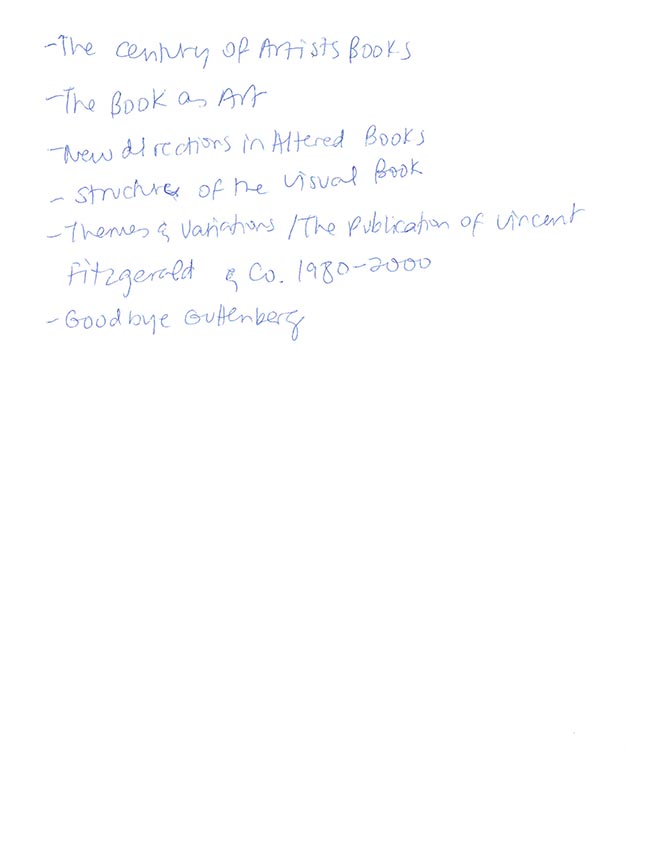 -The Century of Artists Books
-The Book as Art
-New directions in Altered Books
- Structure of the Visual Book
-Themes & Variations / The Publication of Vincent
Fitzgerald & Co. 1980-2000
-Goodbye Guttenberg